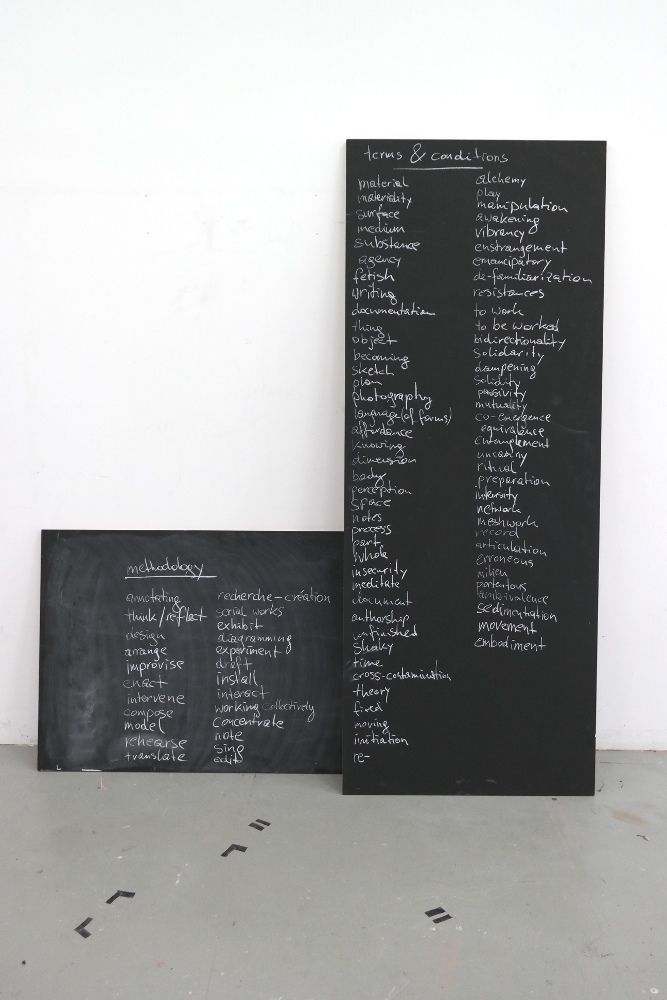 methodology
annotating
think/reflect
design
arrange
improvise
enact
intervene
compose
model
rehearse
translate
recherche-création
serial works
exhibit
diagramming
experiment
draft
install
interact
working collectively
concentrate
note
sing
edit
terms & conditions
material
materiality
surface
medium
substance
agency
fetish
writing
documentation
thing
object
becoming
sketch
plan
photography
language (of forms)
affordance
knowing
dimension
body
perception
space
notes
process
part
whole
insecurity
meditate
document
authorship
unfinished
shaky
time
cross-contamination
theory
fixed
moving
initiation
re-
alchemy
play
manipulation
awakening
vibrancy
enstrangement
emancipatory
de-familiarization
resistances
to work
to be worked
bidirectionality
solidarity
dampening
solidity
passivity
mutuality
co-emergence
equivalence
entanglement
uncanny
ritual
preparation
intensity
network
meshwork
record
articulation
erroneous
milieu
portentous
ambivalence
sedimentation
movement
embodiment